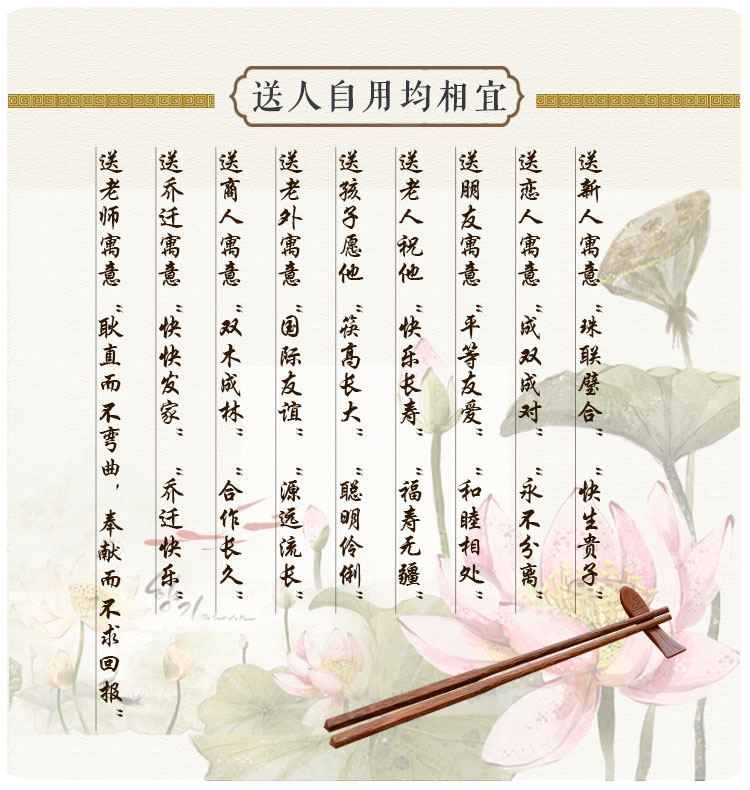 送人自用均相宜
送新人寓意“珠联璧合”“快生贵子”
送恋人寓意“成双成对”“永不分离”
送朋友寓意“平等友爱”“和睦相处”
送老人祝他“快乐长寿”“福寿无疆”
送孩子愿他“筷高长大”“聪明伶俐”
送老外寓意“国际友谊”“源远流长”
送商人寓意“双木成林”“合作长久”
送乔迁寓意“快快发家”“乔迁快乐”
送老师寓意“耿直而不弯曲，奉献而不求回报”